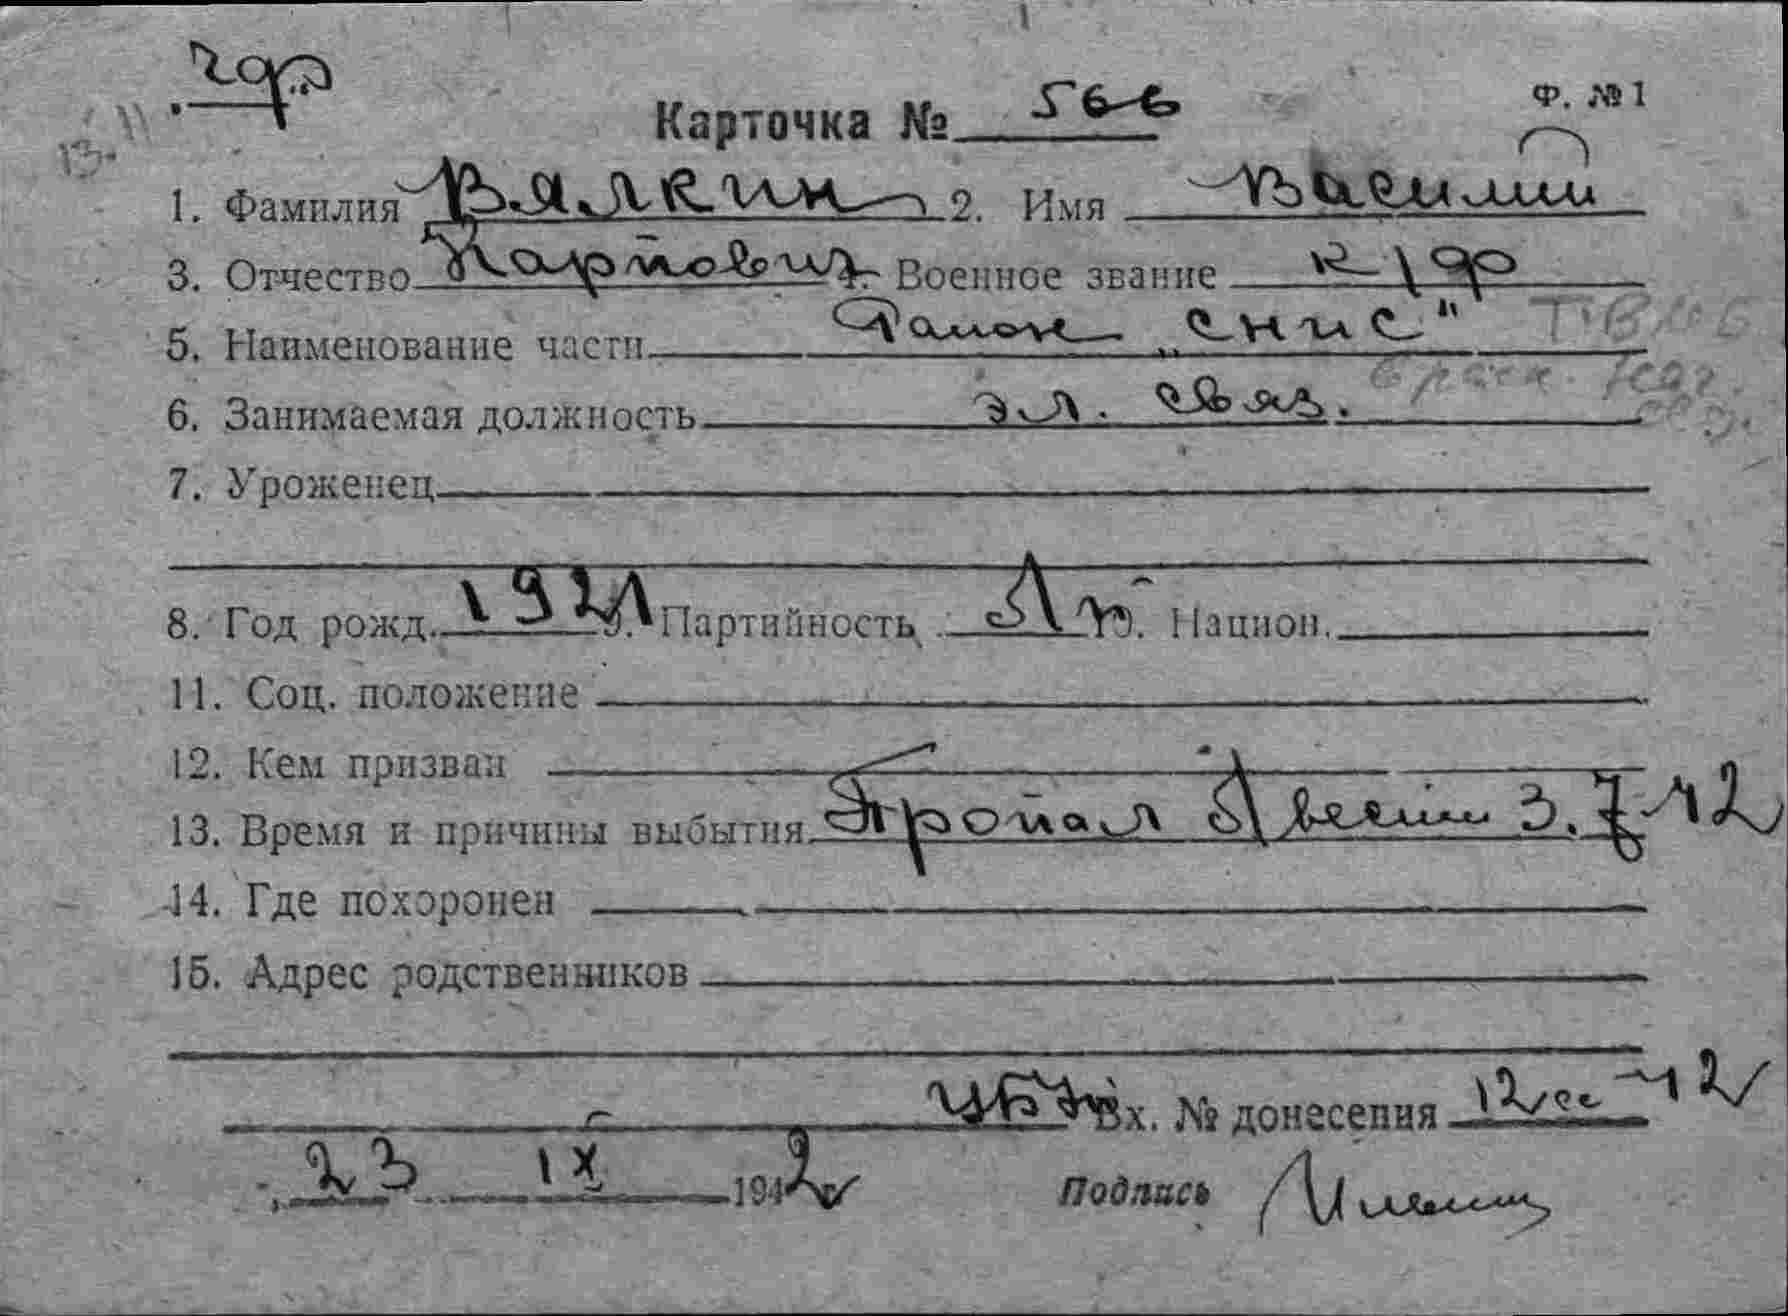 чф
13. 11
Карточка № 566
Ф. № 1
1. Фамилия Вялкин 2. Имя Василий
3. Отчество Карпович 4. Военное звание к/ф
5. Наименование части Район „СНиС"
6. Занимаемая должность эл. связ.
7. Уроженец
8. Год рожд. 1921 9. Партийность 10. Национ.
11. Соц. положение
12. Кем призван
13. Время и причины выбытия Пропал Без вести 3.7-42
14. Где похоронен
15. Адрес родственников
Вх. № донесения 12сс-42
23 IX 1942
Подпись